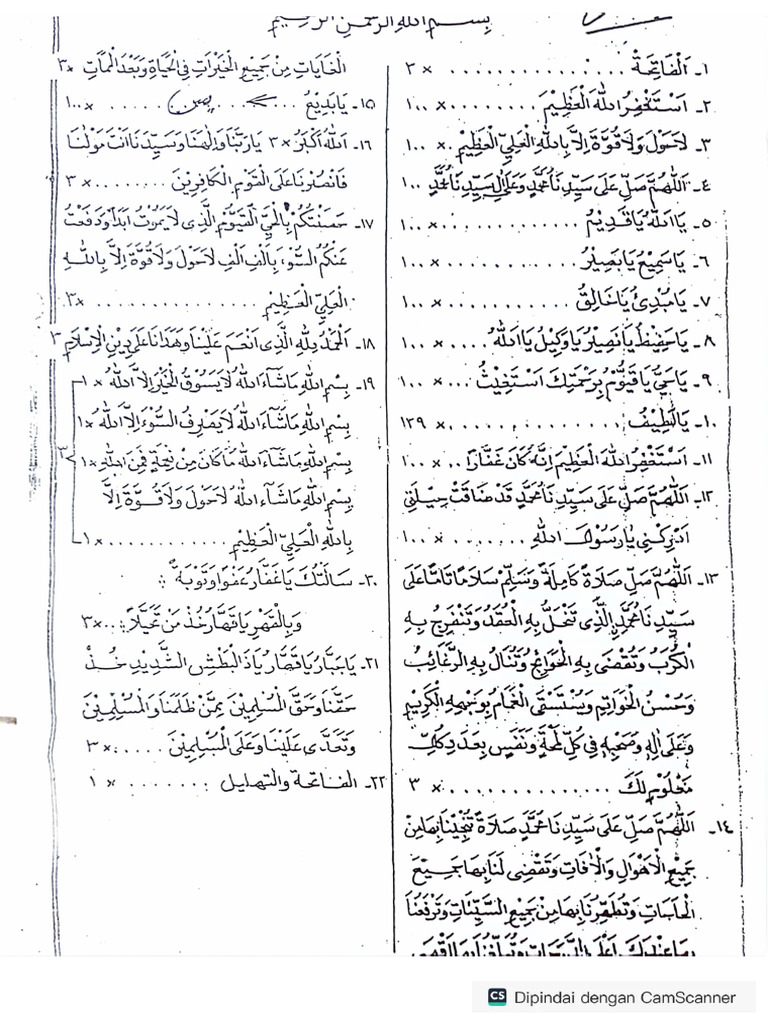 بِسْمِ اللهِ الرَّحْمٰنِ الرَّحِيْمِ
١ـ اَلْفَاتِحَةْ .............. × ٣
٢ـ اَسْتَغْفِرُ اللهَ الْعَظِيْمَ .......... × ١٠٠
٣ـ لَاحَوْلَ وَلَاقُوَّةَ اِلَّا بِاللهِ الْعَلِيِّ الْعَظِيْمِ .× ١٠٠
٤ـ اَللّٰهُمَّ صَلِّ عَلَى سَيِّدِنَا مُحَمَّدٍ وَعَلَى اٰلِ سَيِّدِنَا مُحَمَّدٍ ١٠٠
٥ـ يَا اَللهُ يَاقَدِيْمُ ............ × ١٠٠
٦ـ يَاسَمِيْعُ يَابَصِيْرُ ............ × ١٠٠
٧ـ يَامُبْدِئُ يَاخَالِقُ .......... × ١٠٠
٨ـ يَاحَفِيْظُ يَانَصِيْرُ يَاوَكِيْلُ يَا اَللهُ .... × ١٠٠
٩ـ يَاحَيُّ يَاقَيُّوْمُ بِرَحْمَتِكَ اَسْتَغِيْثُ ... × ١٠٠
١٠ـ يَالَطِيْفُ .............. × ١٢٩
١١ـ اَسْتَغْفِرُ اللهَ الْعَظِيْمَ اِنَّهُ كَانَ غَفَّارًا .. × ١٠٠
١٢ـ اَللّٰهُمَّ صَلِّ عَلَى سَيِّدِنَا مُحَمَّدٍ قَدْ ضَاقَتْ حِيْلَتِى
اَدْرِكْنِى يَارَسُوْلَ اللهِ ........ × ١٠٠
١٣ـ اَللّٰهُمَّ صَلِّ صَلَاةً كَامِلَةً وَسَلِّمْ سَلَامًا تَامًّا عَلَى
سَيِّدِنَا مُحَمَّدٍ الَّذِى تَنْحَلُّ بِهِ الْعُقَدُ وَتَنْفَرِجُ بِهِ
الْكُرَبُ وَتُقْضَى بِهِ الْحَوَائِجُ وَتُنَالُ بِهِ الرَّغَائِبُ
وَحُسْنُ الْخَوَاتِمِ وَيُسْتَسْقَى الْغَمَامُ بِوَجْهِهِ الْكَرِيْمِ
وَعَلَى اٰلِهِ وَصَحْبِهِ فِى كُلِّ لَمْحَةٍ وَنَفَسٍ بِعَدَدِ كُلِّ
مَعْلُوْمٍ لَكَ .............. × ٣
١٤ـ اَللّٰهُمَّ صَلِّ عَلَى سَيِّدِنَا مُحَمَّدٍ صَلَاةً تُنْجِيْنَا بِهَا مِنْ
جَمِيْعِ الْاَهْوَالِ وَالْاٰفَاتِ وَتَقْضِى لَنَا بِهَا جَمِيْعَ
الْحَاجَاتِ وَتُطَهِّرُنَا بِهَا مِنْ جَمِيْعِ السَّيِّئَاتِ وَتَرْفَعُنَا
بِهَا عِنْدَكَ اَعْلَى الدَّرَجَاتِ وَتُبَلِّغُنَا بِهَا اَقْصَى
الْغَايَاتِ مِنْ جَمِيْعِ الْخَيْرَاتِ فِى الْحَيَاةِ وَبَعْدَ الْمَمَاتِ × ٣
١٥ـ يَابَدِيْعُ .... يس ...... × ١٠٠
١٦ـ اَللهُ اَكْبَرُ × ٣ يَارَبَّنَا وَاِلٰهَنَا وَسَيِّدَنَا اَنْتَ مَوْلٰنَا
فَانْصُرْنَا عَلَى الْقَوْمِ الْكَافِرِيْنَ ........ × ٣
١٧ـ حَصَّنْتُكُمْ بِالْحَيِّ الْقَيُّوْمِ الَّذِى لَايَمُوْتُ اَبَدًا وَدَفَعْتُ
عَنْكُمُ السُّوْءَ بِاَلْفِ اَلْفِ لَاحَوْلَ وَلَاقُوَّةَ اِلَّا بِاللهِ
الْعَلِيِّ الْعَظِيْمِ .............. × ٣
١٨ـ اَلْحَمْدُ لِلّٰهِ الَّذِى اَنْعَمَ عَلَيْنَا وَهَدَانَا عَلَى دِيْنِ الْاِسْلَامِ ٣
١٩ـ بِسْمِ اللهِ مَاشَآءَ اللهُ لَايَسُوْقُ الْخَيْرَ اِلَّا اللهُ × ١
بِسْمِ اللهِ مَاشَآءَ اللهُ لَايَصْرِفُ السُّوْءَ اِلَّا اللهُ × ١
بِسْمِ اللهِ مَاشَآءَ اللهُ مَاكَانَ مِنْ نِعْمَةٍ فَمِنَ اللهِ × ١
٣×
بِسْمِ اللهِ مَاشَآءَ اللهُ لَاحَوْلَ وَلَاقُوَّةَ اِلَّا
بِاللهِ الْعَلِيِّ الْعَظِيْمِ ........... × ١
٢٠ـ سَاَلْتُكَ يَاغَفَّارُ عَفْوًا وَتَوْبَةً :
وَبِالْقَهْرِ يَاقَهَّارُ خُذْ مَنْ تَحَيَّلَا ... × ٣
٢١ـ يَاجَبَّارُ يَاقَهَّارُ يَاذَا الْبَطْشِ الشَّدِيْدِ خُذْ
حَقَّنَا وَحَقَّ الْمُسْلِمِيْنَ مِمَّنْ ظَلَمَنَا وَالْمُسْلِمِيْنَ
وَتَعَدَّى عَلَيْنَا وَعَلَى الْمُسْلِمِيْنَ ...... × ٣
٢٢ـ الفاتحة والتهليل ........ × ١
CS Dipindai dengan CamScanner